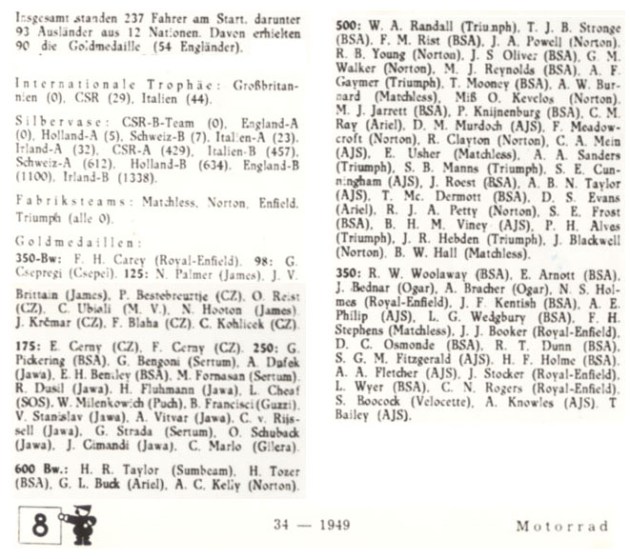 Insgesamt standen 237 Fahrer am Start, darunter
93 Ausländer aus 12 Nationen. Davon erhielten
90 die Goldmedaille (54 Engländer).
Internationale Trophäe: Großbritan-
nien (0), CSR (29), Italien (44).
Silbervase: CSR-B-Team (0), England-A
(0), Holland-A (5), Schweiz-B (7), Italien-A (23).
Irland-A (32), CSR-A (429), Italien-B (457),
Schweiz-A (612), Holland-B (634), England-B
(1100), Irland-B (1338).
Fabriksteams: Matchless, Norton, Enfield,
Triumph (alle 0).
Goldmedaillen:
350-Bw: F. H. Carey (Royal-Enfield). 98: G.
Csepregi (Csepel). 125: N. Palmer (James), J. V.
Brittain (James), P. Bestebreurtje (CZ), O. Reist
(CZ), C. Ubioli (M. V.), N. Hooton (James)
J. Krčmar (CZ), F. Blaha (CZ). C. Kohlicek (CZ)
175: E. Cerny (CZ), F. Cerny (CZ). 250: G.
Pickering (BSA), G. Bengoni (Sertum), A. Dufek
(Jawa), E. H. Bemley (BSA), M. Fornasan (Sertum).
R. Dusil (Jawa), H. Fluhmann (Jawa), L. Cheaf
(SOS), W. Milenkowich (Puch), B. Francisci (Guzzi).
V. Stanislav (Jawa), A. Vitvar (Jawa), C. v. Rijs-
sell (Jawa), G. Strada (Sertum), O. Schuback
(Jawa), J. Cimandi (Jawa), C. Marlo (Gilera).
600 Bw.: H. R. Taylor (Sumbeam), H. Tozer
(BSA), G. L. Buck (Ariel), A. C. Kelly (Norton).
500: W. A. Randall (Triumph), T. J. B. Stronge
(BSA), F. M. Rist (BSA), J. A. Powell (Norton),
R. B. Young (Norton), J. S Oliver (BSA), G. M.
Walker (Norton), M. J. Reynolds (BSA), A. F.
Gaymer (Triumph), T. Mooney (BSA), A. W. Bur-
nard (Matchless), Miß O. Kevelos (Norton),
M. J. Jarrett (BSA), P. Knijnenburg (BSA), C. M.
Ray (Ariel), D. M. Murdoch (AJS), F. Meadow-
croft (Norton), R. Clayton (Norton), C. A. Mein
(AJS), E. Usher (Matchless), A. A. Sanders
(Triumph), S. B. Manns (Triumph), S. E. Cun-
ningham (AJS), J. Roest (BSA), A. B. N. Taylor
(AJS), T. Mc. Dermott (BSA), D. S. Evans
(Ariel), R. J. A. Petty (Norton), S. E. Frost
(BSA), B. H. M. Viney (AJS), P. H. Alves
(Triumph), J. R. Hebden (Triumph), J. Blackwell
(Norton), B. W. Hall (Matchless).
350: R. W. Woolaway (BSA), E. Arnott (BSA),
J. Bednar (Ogar), A. Bracher (Ogar), N. S. Hol-
mes (Royal-Enfield), J. F. Kentish (BSA), A. E.
Philip (AJS), L. G. Wedgbury (BSA), F. H.
Stephens (Matchless), J. J. Booker (Royal-Enfield),
D. C. Osmonde (BSA), R. T. Dunn (BSA),
S. G. M. Fitzgerald (AJS), H. F. Holme (BSA),
A. A. Fletcher (AJS), J. Stocker (Royal-Enfield),
L. Wyer (BSA), C. N. Rogers (Royal-Enfield),
S. Boocock (Velocette), A. Knowles (AJS), T
Bailey (AJS).
8
34 — 1949
Motorrad